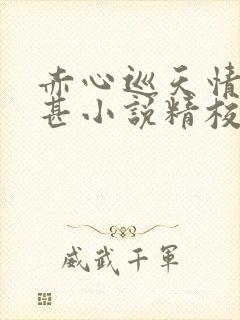 赤心巡天情
甚小說精校
威武千軍